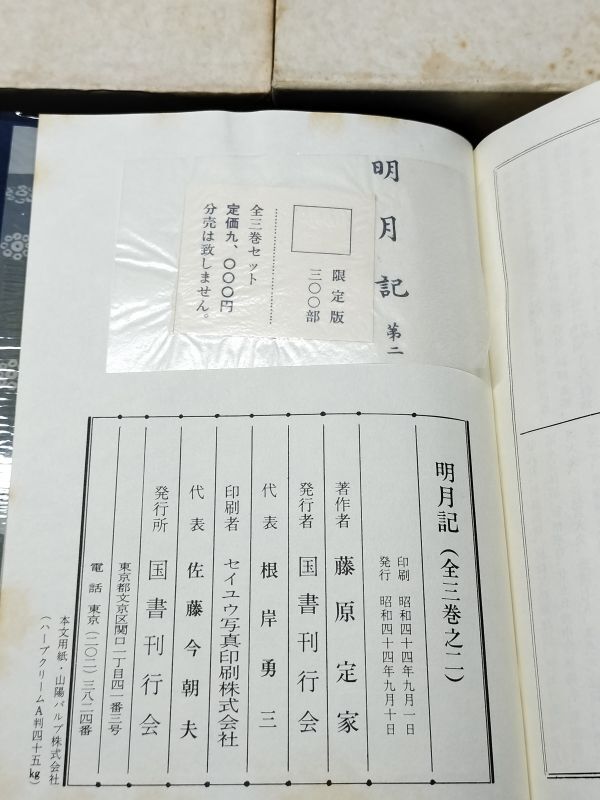 明月記 第二
限定版
三〇〇部
全三巻セット
定価九、〇〇〇円
分売は致しません。
明月記（全三巻之二）
印刷 昭和四十四年九月一日
発行 昭和四十四年九月十日
著作者 藤原定家
発行者 国書刊行会
代表 根岸勇三
印刷者 セイユウ写真印刷株式会社
代表 佐藤今朝夫
発行所 国書刊行会
東京都文京区関口一丁目四一番三号
電話 東京（二〇二）三八二四番
本文用紙・山陽パルプ株式会社
（ハーブクリームA判四十五kg）